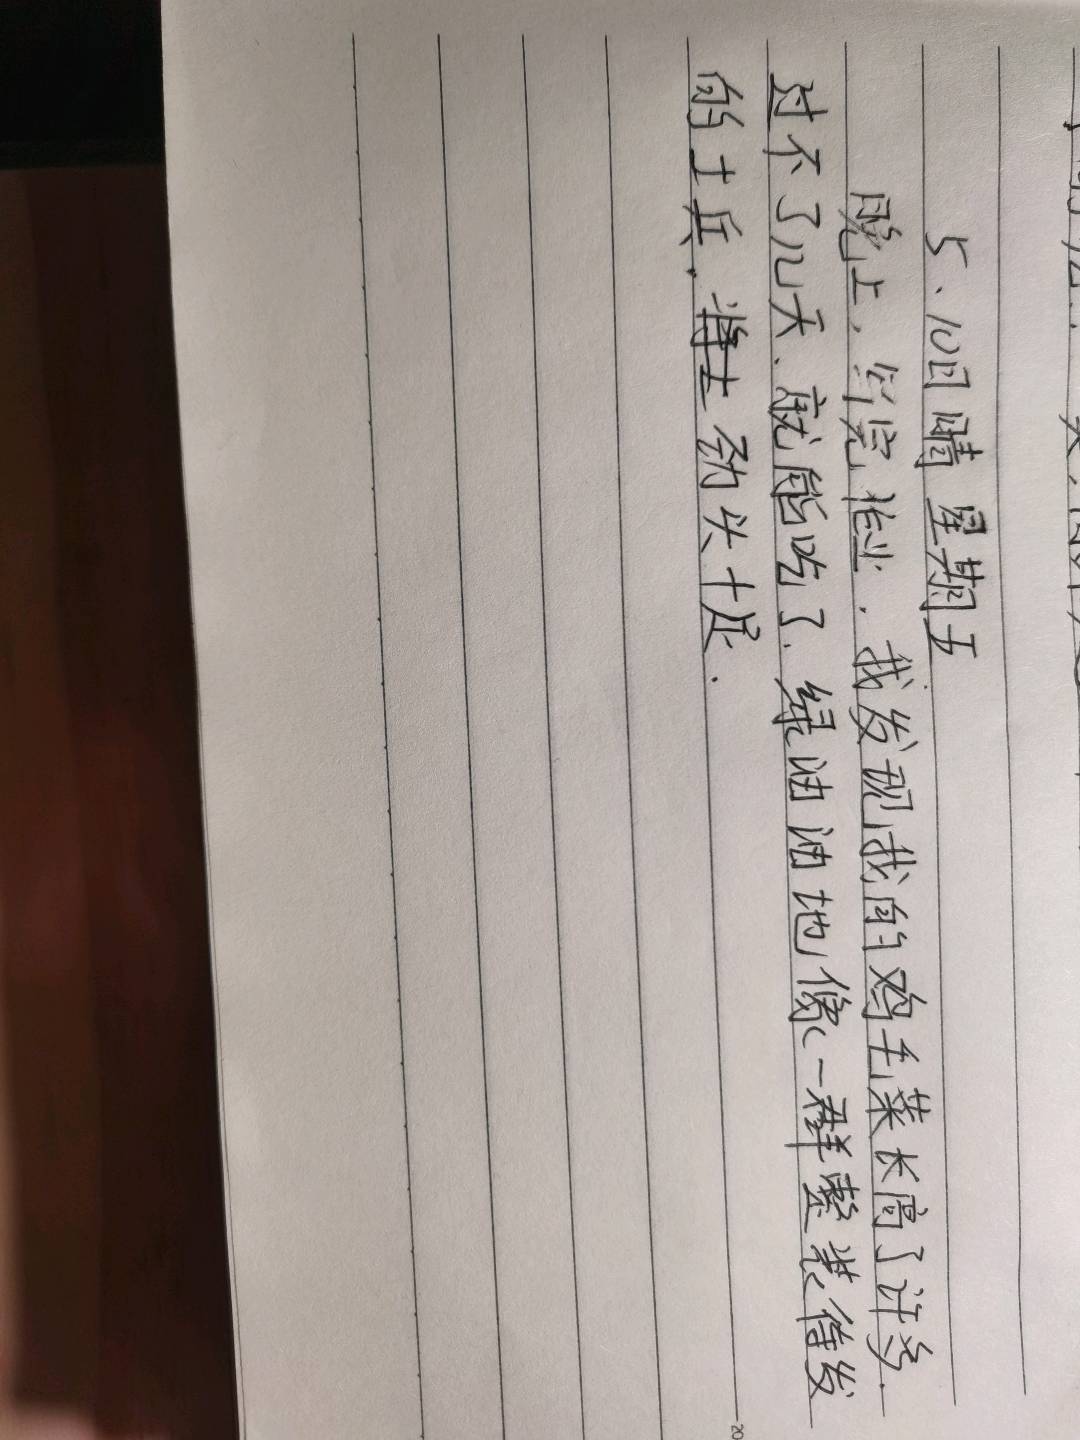 5、10日 晴 星期五
晚上，写完作业，我发现我的鸡毛菜长高了许多．
过不了几天、就能吃了．绿油油地像一群整装待发
的士兵．将士劲头十足．
20